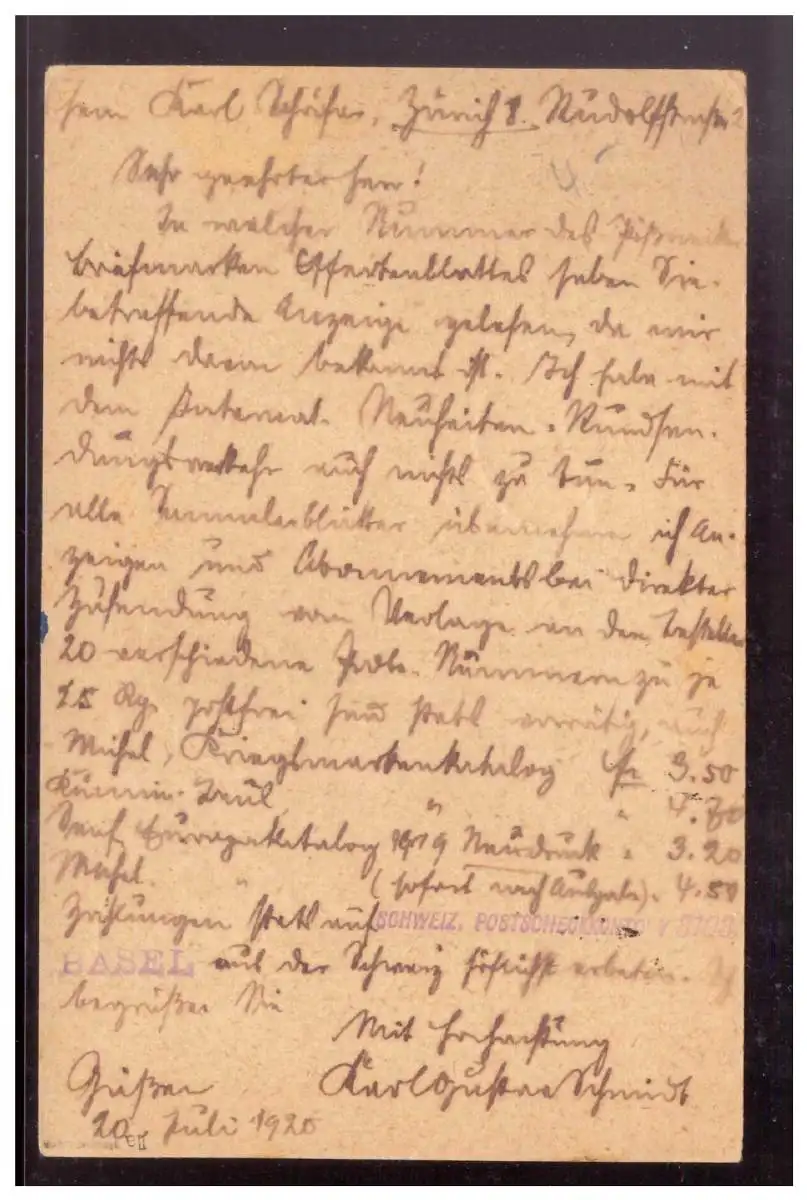 Herrn Karl Schäfer, Zürich 1. Rudolfstrasse 2
4
Sehr geehrter Herr!
In welcher Nummer des
Briefmarken Offertenblattes haben Sie
betreffende Anzeige gelesen, da mir
nichts davon bekannt ist. Ich habe mit
dem Internat. Neuheiten-Rundsen-
dungsverkehr auch nichts zu tun. Für
alle Sammlerblätter übernehme ich An-
zeigen und Abonnements bei direkter
Zusendung vom Verlage an den Besteller
20 verschiedene Probe-Nummern zu je
15 Rp. postfrei sind stets vorrätig, auch
Michel, Kriegsmarkenkatalog Fr 3.50
" " 4.70
Senf, Europakatalog 1919 Neudruck " 3.20
Michel " (sofort nach Ausgabe). 4.50
Zahlungen stets auf SCHWEIZ. POSTSCHECKKONTO V
BASEL aus der Schweiz höflichst erbeten. Ich
begrüße Sie
Mit Hochachtung
Karl Gustav Schmidt
Güsten
20. Juli 1920